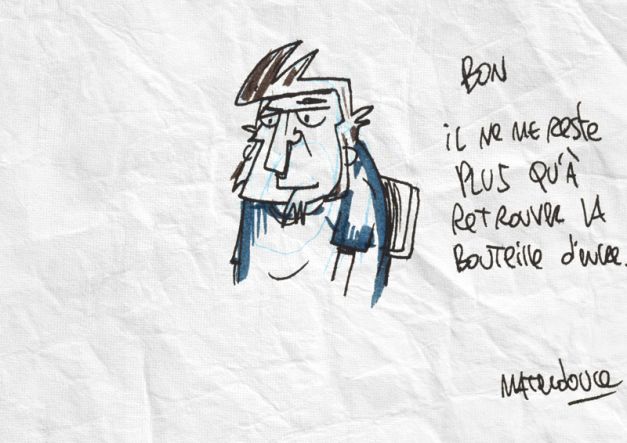 BON
il NE ME RESTE
PLUS QU'À
RETROUVER LA
BOUTEILLE d'ENCRE.
MATERdouce